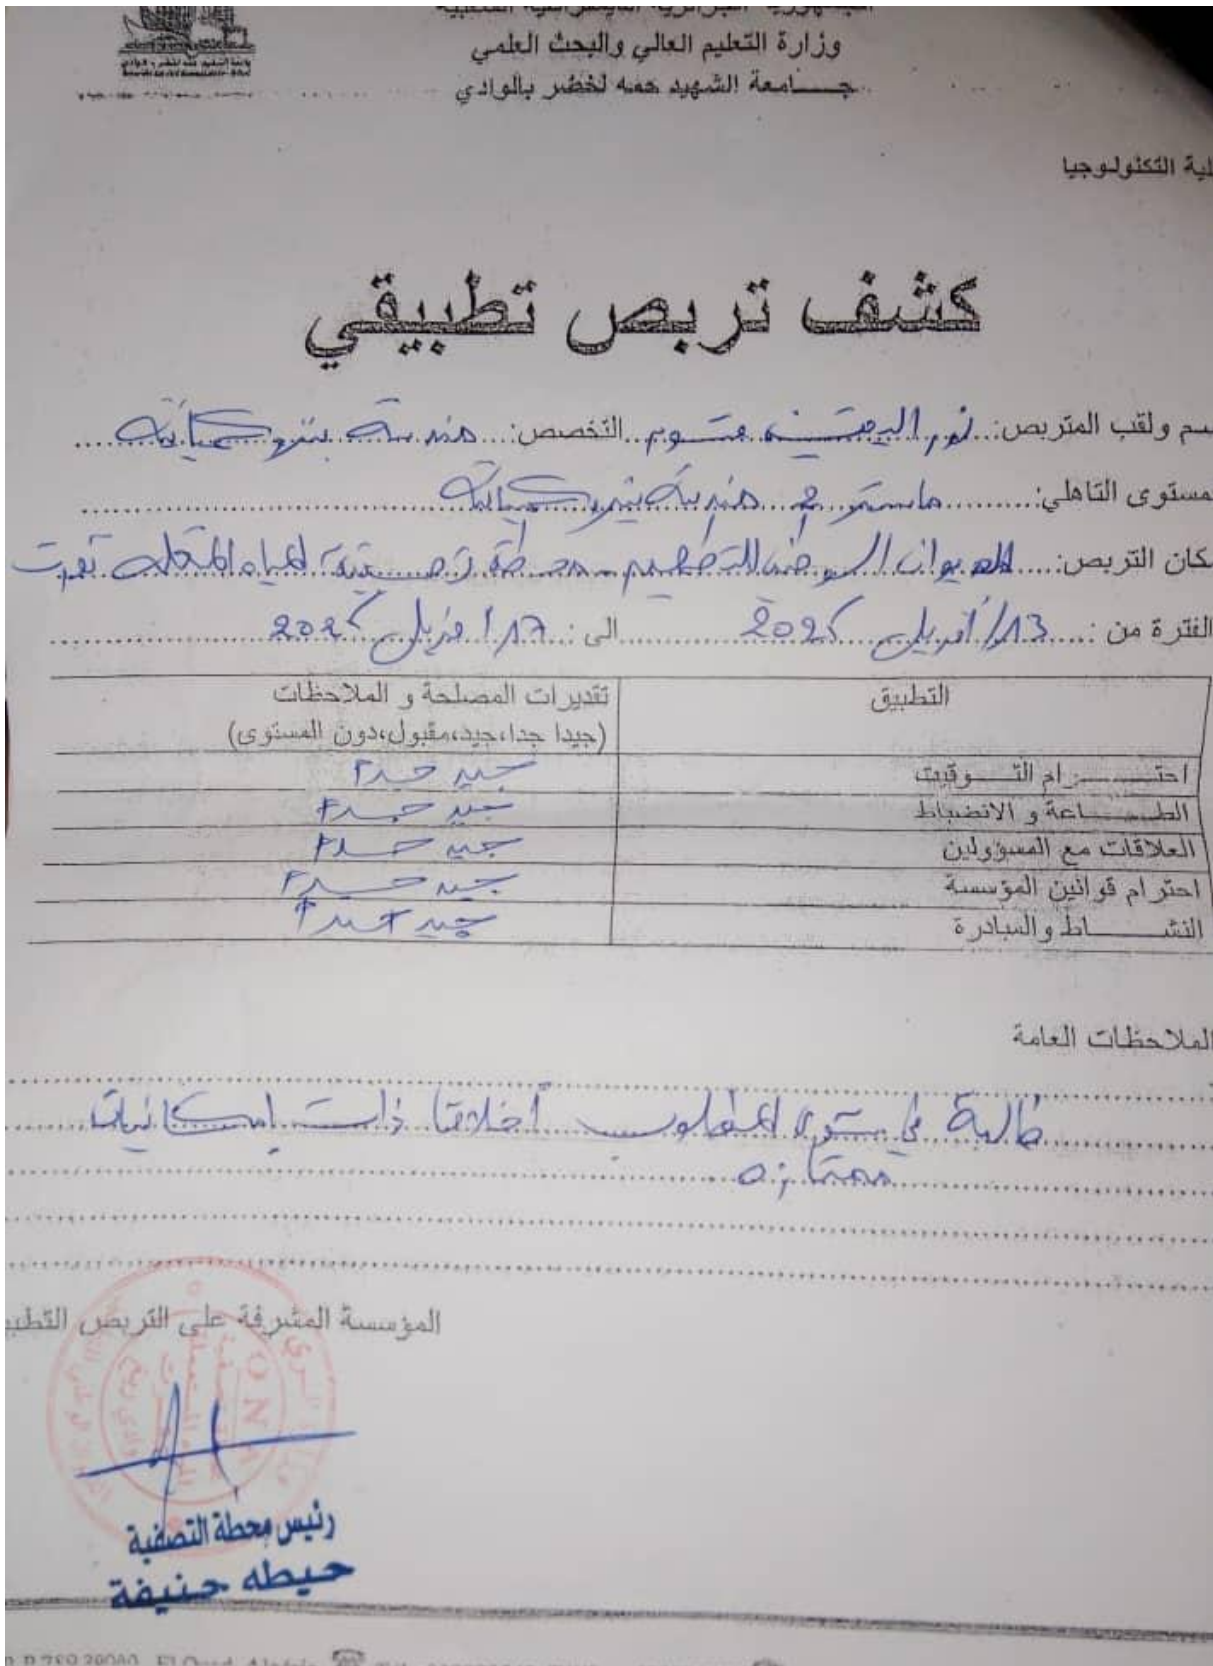 وزارة التعليم العالي والبحث العلمي
جـــــامعة الشهيد حمه لخضر بالوادي
لية التكنولوجيا
كشف تربص تطبيقي
سم ولقب المتربص: نور اليقين التخصص: هندسة بتروكميائية
مستوى التاهلي: ماستر 2 هندسة بتروكميائية
كان التربص: الديوان الوطني للتطهير محطة تصفية المياه المستعملة تقرت
الفترة من : 13/أفريل 2025 الى : 17/أفريل 2025
التطبيق تقديرات المصلحة و الملاحظات
(جيدا جدا،جيد،مقبول،دون المستوى)
احتـــــــرام التـــوقيت جيد جدا
الطـــــاعة و الانضباط جيد جدا
العلاقات مع المسؤولين جيد جدا
احترام قوانين المؤسسة جيد جدا
النشـــــاط والمبادرة جيد جدا
الملاحظات العامة
طالبة في مستوى المطلوب أخلاقا ذات إمكانيات
ممتازه
المؤسسة المشرفة على التربص التطبي
رئيس محطة التصفية
حيطه حنيفة